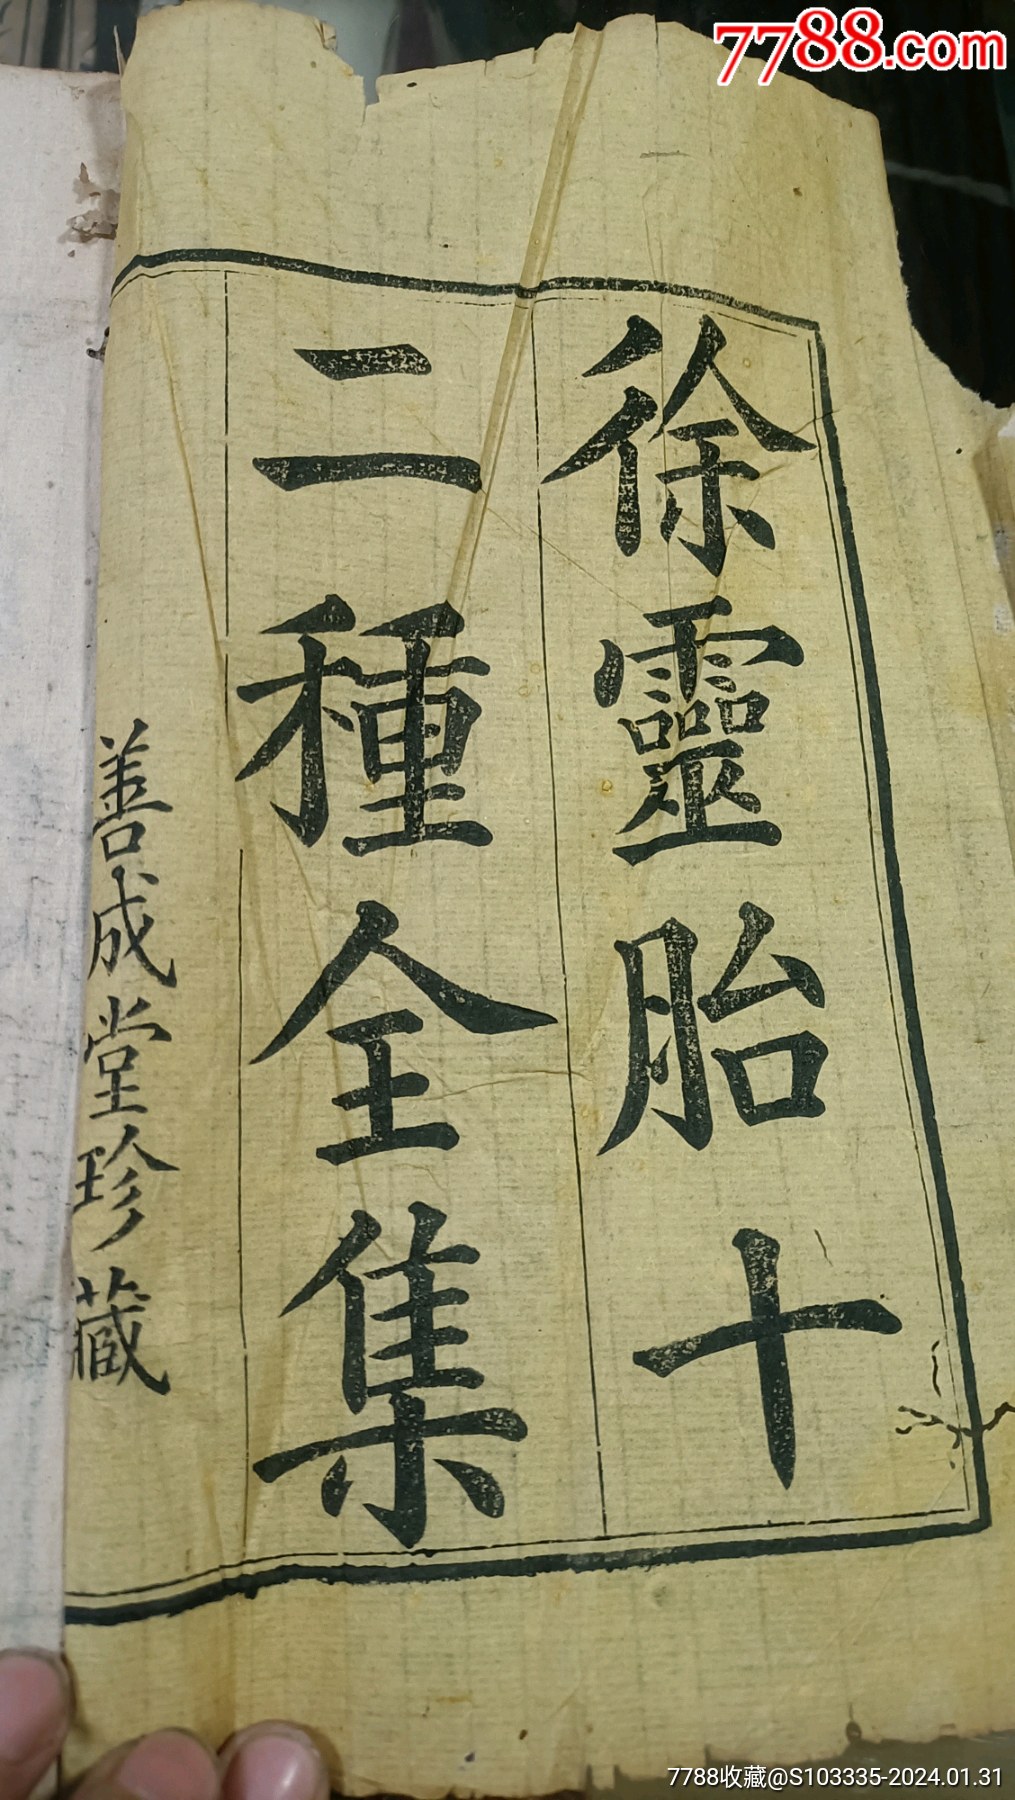 7788.com
徐靈胎十
二種全集
善成堂珍藏
7788收藏@S103335-2024.01.31